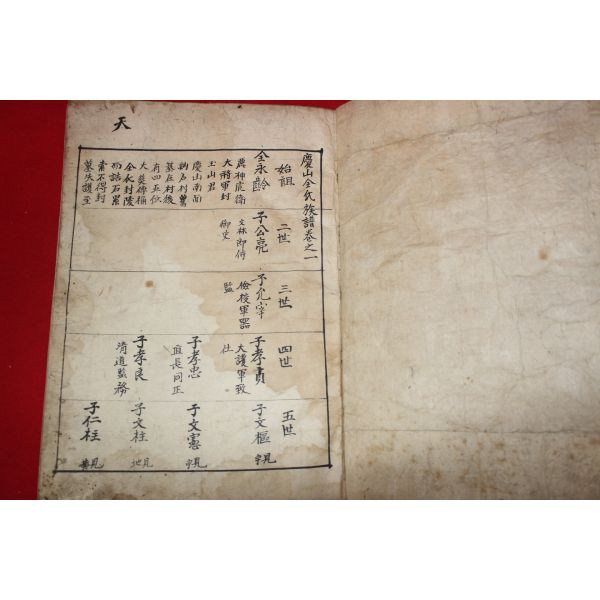 天
慶山全氏族譜卷之一
始祖
全永齡
興神虎衛
大將軍封
玉山君
慶山南面
墓在村後
有四五伏
大莫傳稱
全永封陵
而誌石累
索不得封
墓失護至
二世
子公亮
文林郎侍
御史
三世
子允宰
檢校軍器
監
四世
子孝貴
大護軍致
仕
子孝忠
直長同正
子孝良
清道監務
五世
子文樞
見宇
子文憲
見宇
子文柱
見地
子仁柱
見黃